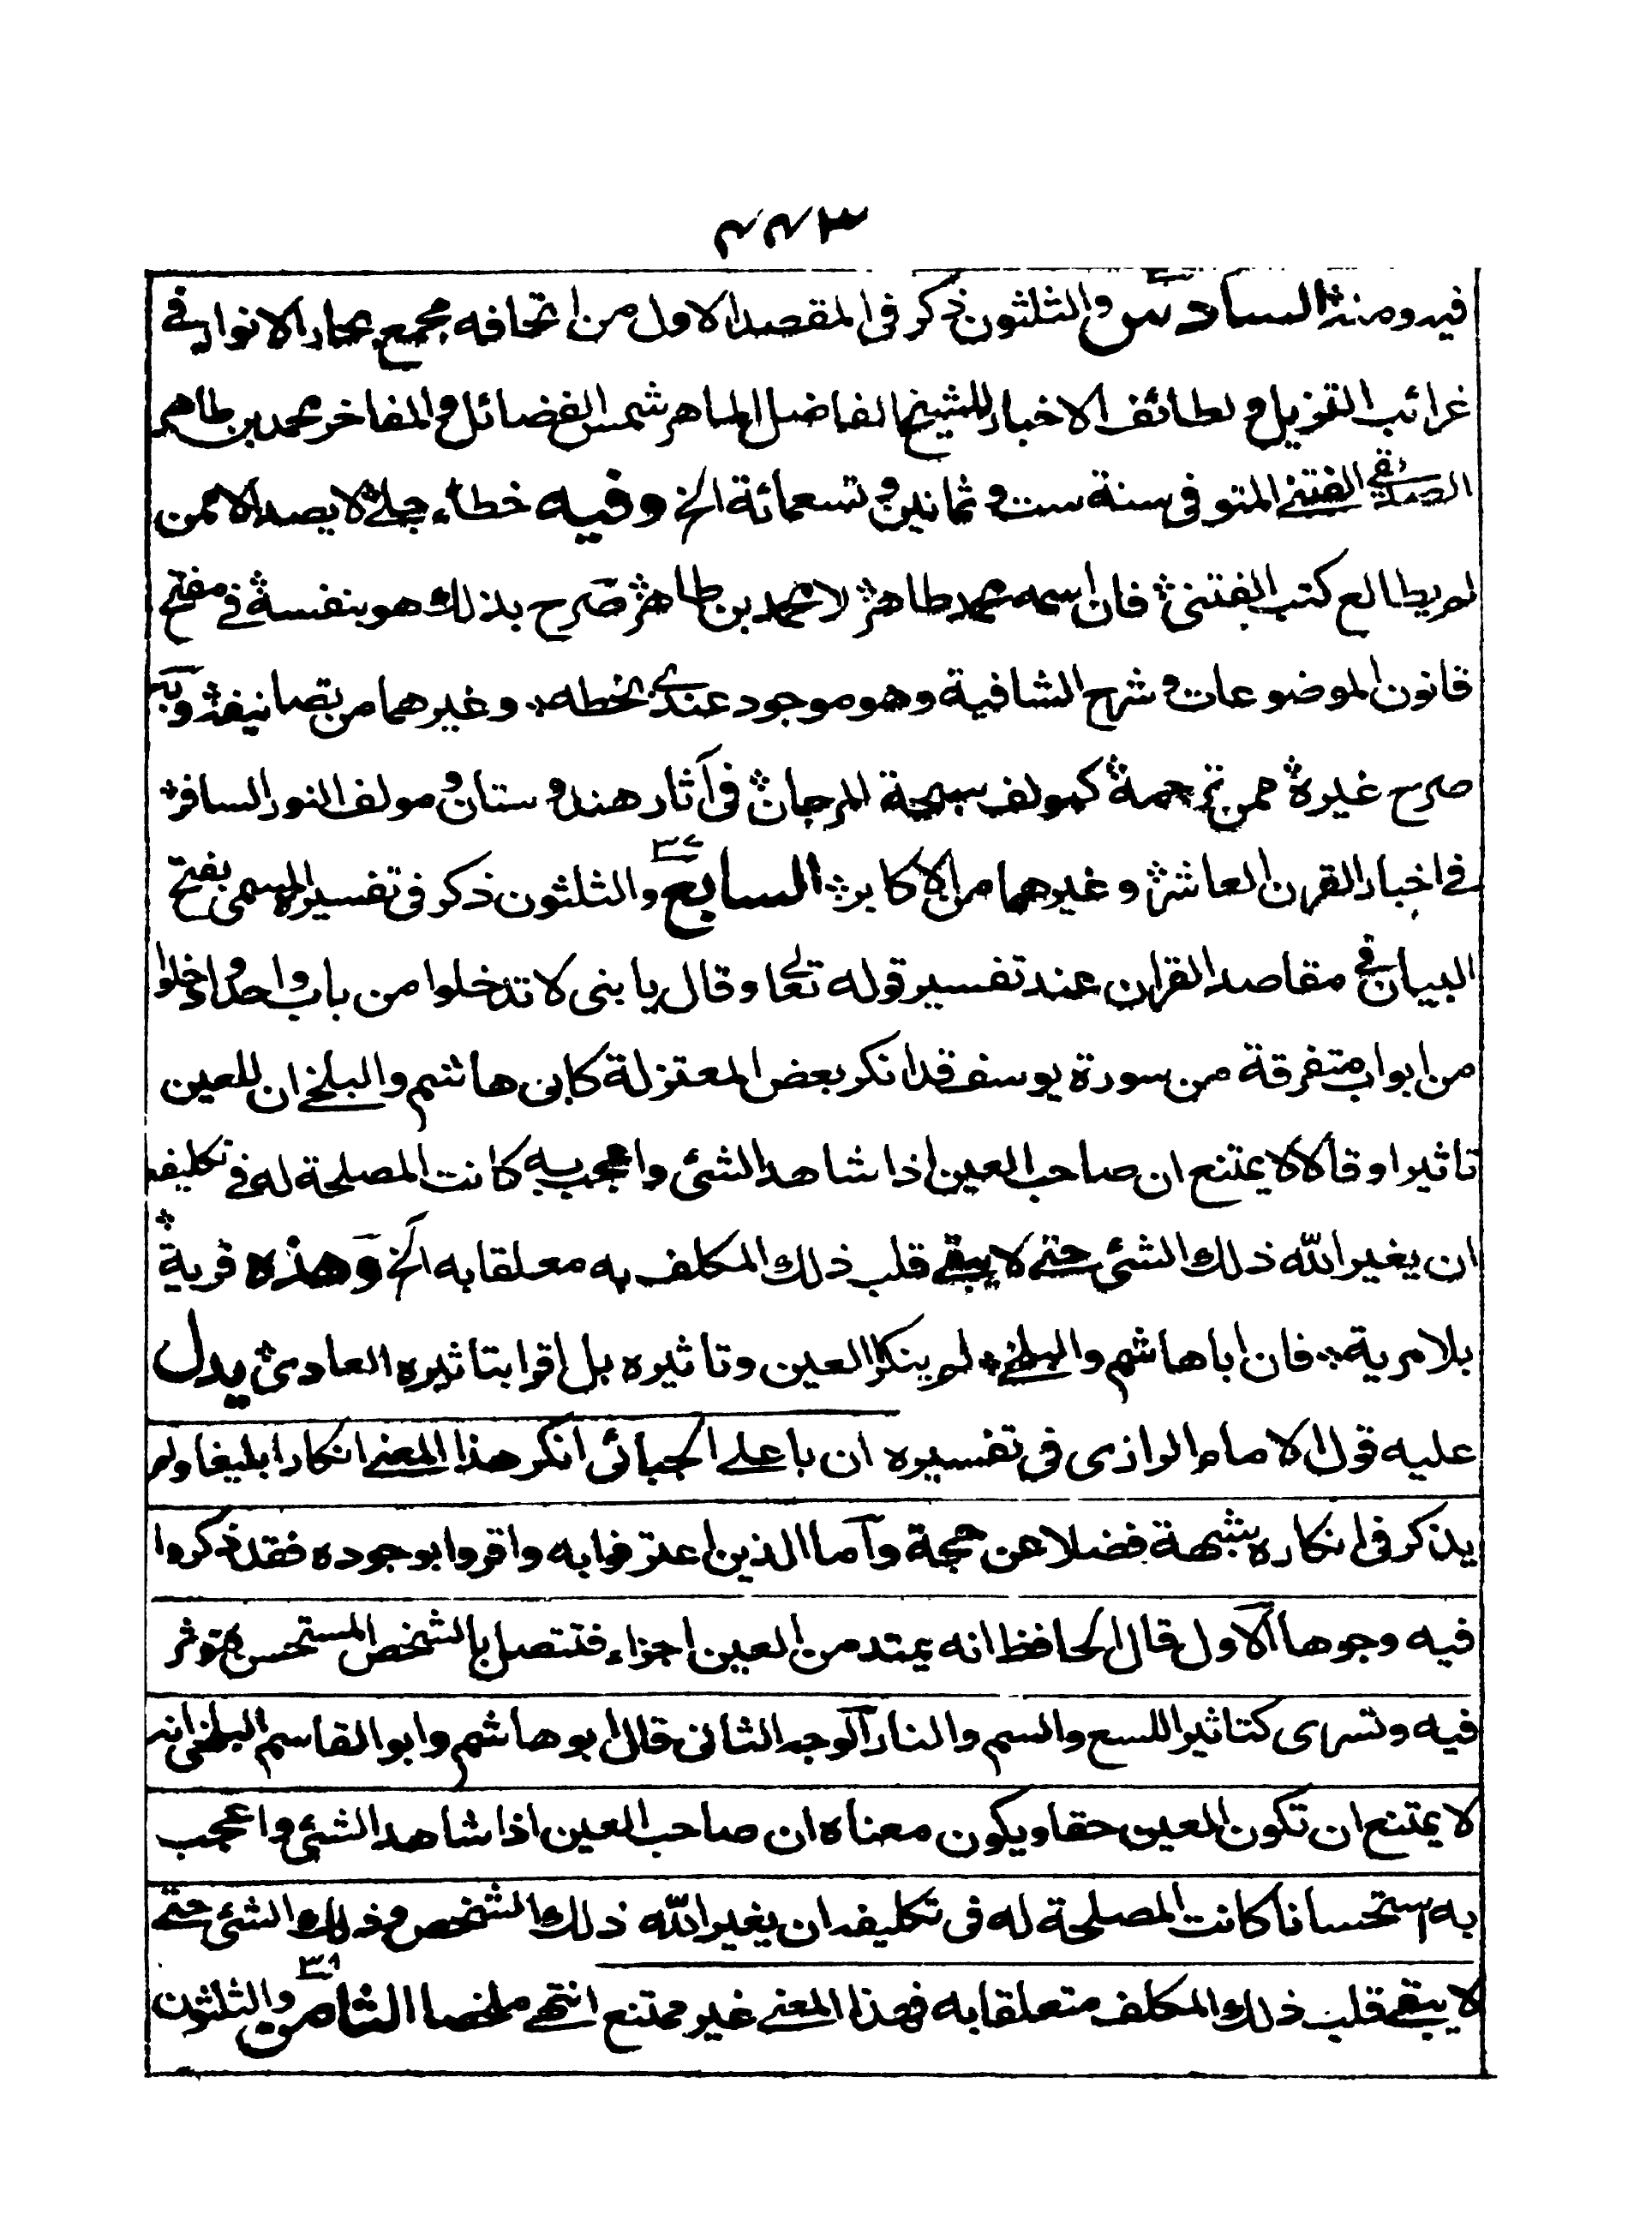 ٤٤٣
فيه ومنه السادس والثلثون ذكر فى المقصد الاول من اتحافه مجمع بحار الانوار فى
غرائب التنزيل و لطائف الاخبار للشيخ الفاضل الماهر شمس الفضائل و المفاخر محمد بن طاهر
الصديقى الفتنى المتوفى سنة ست و ثمانين و تسعمائة الخ وفيه خطاء جلى لا يصدر الا ممن
لم يطالع كتب الفتنى فان اسمه محمد طاهر لا محمد بن طاهر صرح بذلك هو بنفسه فى مفتح
قانون الموضوعات و شرح الشافية وهو موجود عندى بخطه وغيرهما من تصانيفه وبه
صرح غيره ممن ترجمه كمولف سبحة المرجان فى آثار هندوستان و مولف النور السافر
فى اخبار القرن العاشر وغيرهما من الاكابر السابع ٣٧ والثلثون ذكر فى تفسيره المسمى بفتح
البيان فى مقاصد القران عند تفسير قوله تعالى وقال يا بنى لا تدخلوا من باب واحد وادخلوا
من ابواب متفرقة من سورة يوسف قد انكر بعض المعتزلة كابى هاشم والبلخى ان للعين
تاثيرا وقالا لا يمتنع ان صاحب العين اذا شاهد الشئى واعجب به كانت المصلحة له فى تكليفه
ان يغير الله ذلك الشئى حتى لا يبقى قلب ذلك المكلف به معلقا به الخ وهذه فرية
بلا مرية فان ابا هاشم والبلخى لم ينكرا العين وتاثيره بل اقرا بتاثيره العادى يدل
عليه قول الامام الرازى فى تفسيره ان با على الجبائى انكر هذا المعنى انكارا بليغا ولم
يذكر فى انكاره شبهة فضلا عن حجة واما الذين اعترفوا به واقروا بوجوده فقد ذكروا
فيه وجوها الاول قال الحافظ انه يمتد من العين اجزاء فتتصل بالشخص المستحسن فتوثر
فيه وتسرى كتاثير اللسع والسم والنار الوجه الثانى قال ابو هاشم وابو القاسم البلخى انه
لا يمتنع ان تكون العين حقا ويكون معناه ان صاحب العين اذا شاهد الشئى واعجب
به استحسانا كانت المصلحة له فى تكليفه ان يغير الله ذلك الشخص و ذلك الشئى حتى
لا يبقى قلب ذلك المكلف متعلقا به فهذا المعنى غير ممتنع انتهى ملخصا الثامن ٣٨ والثلثون